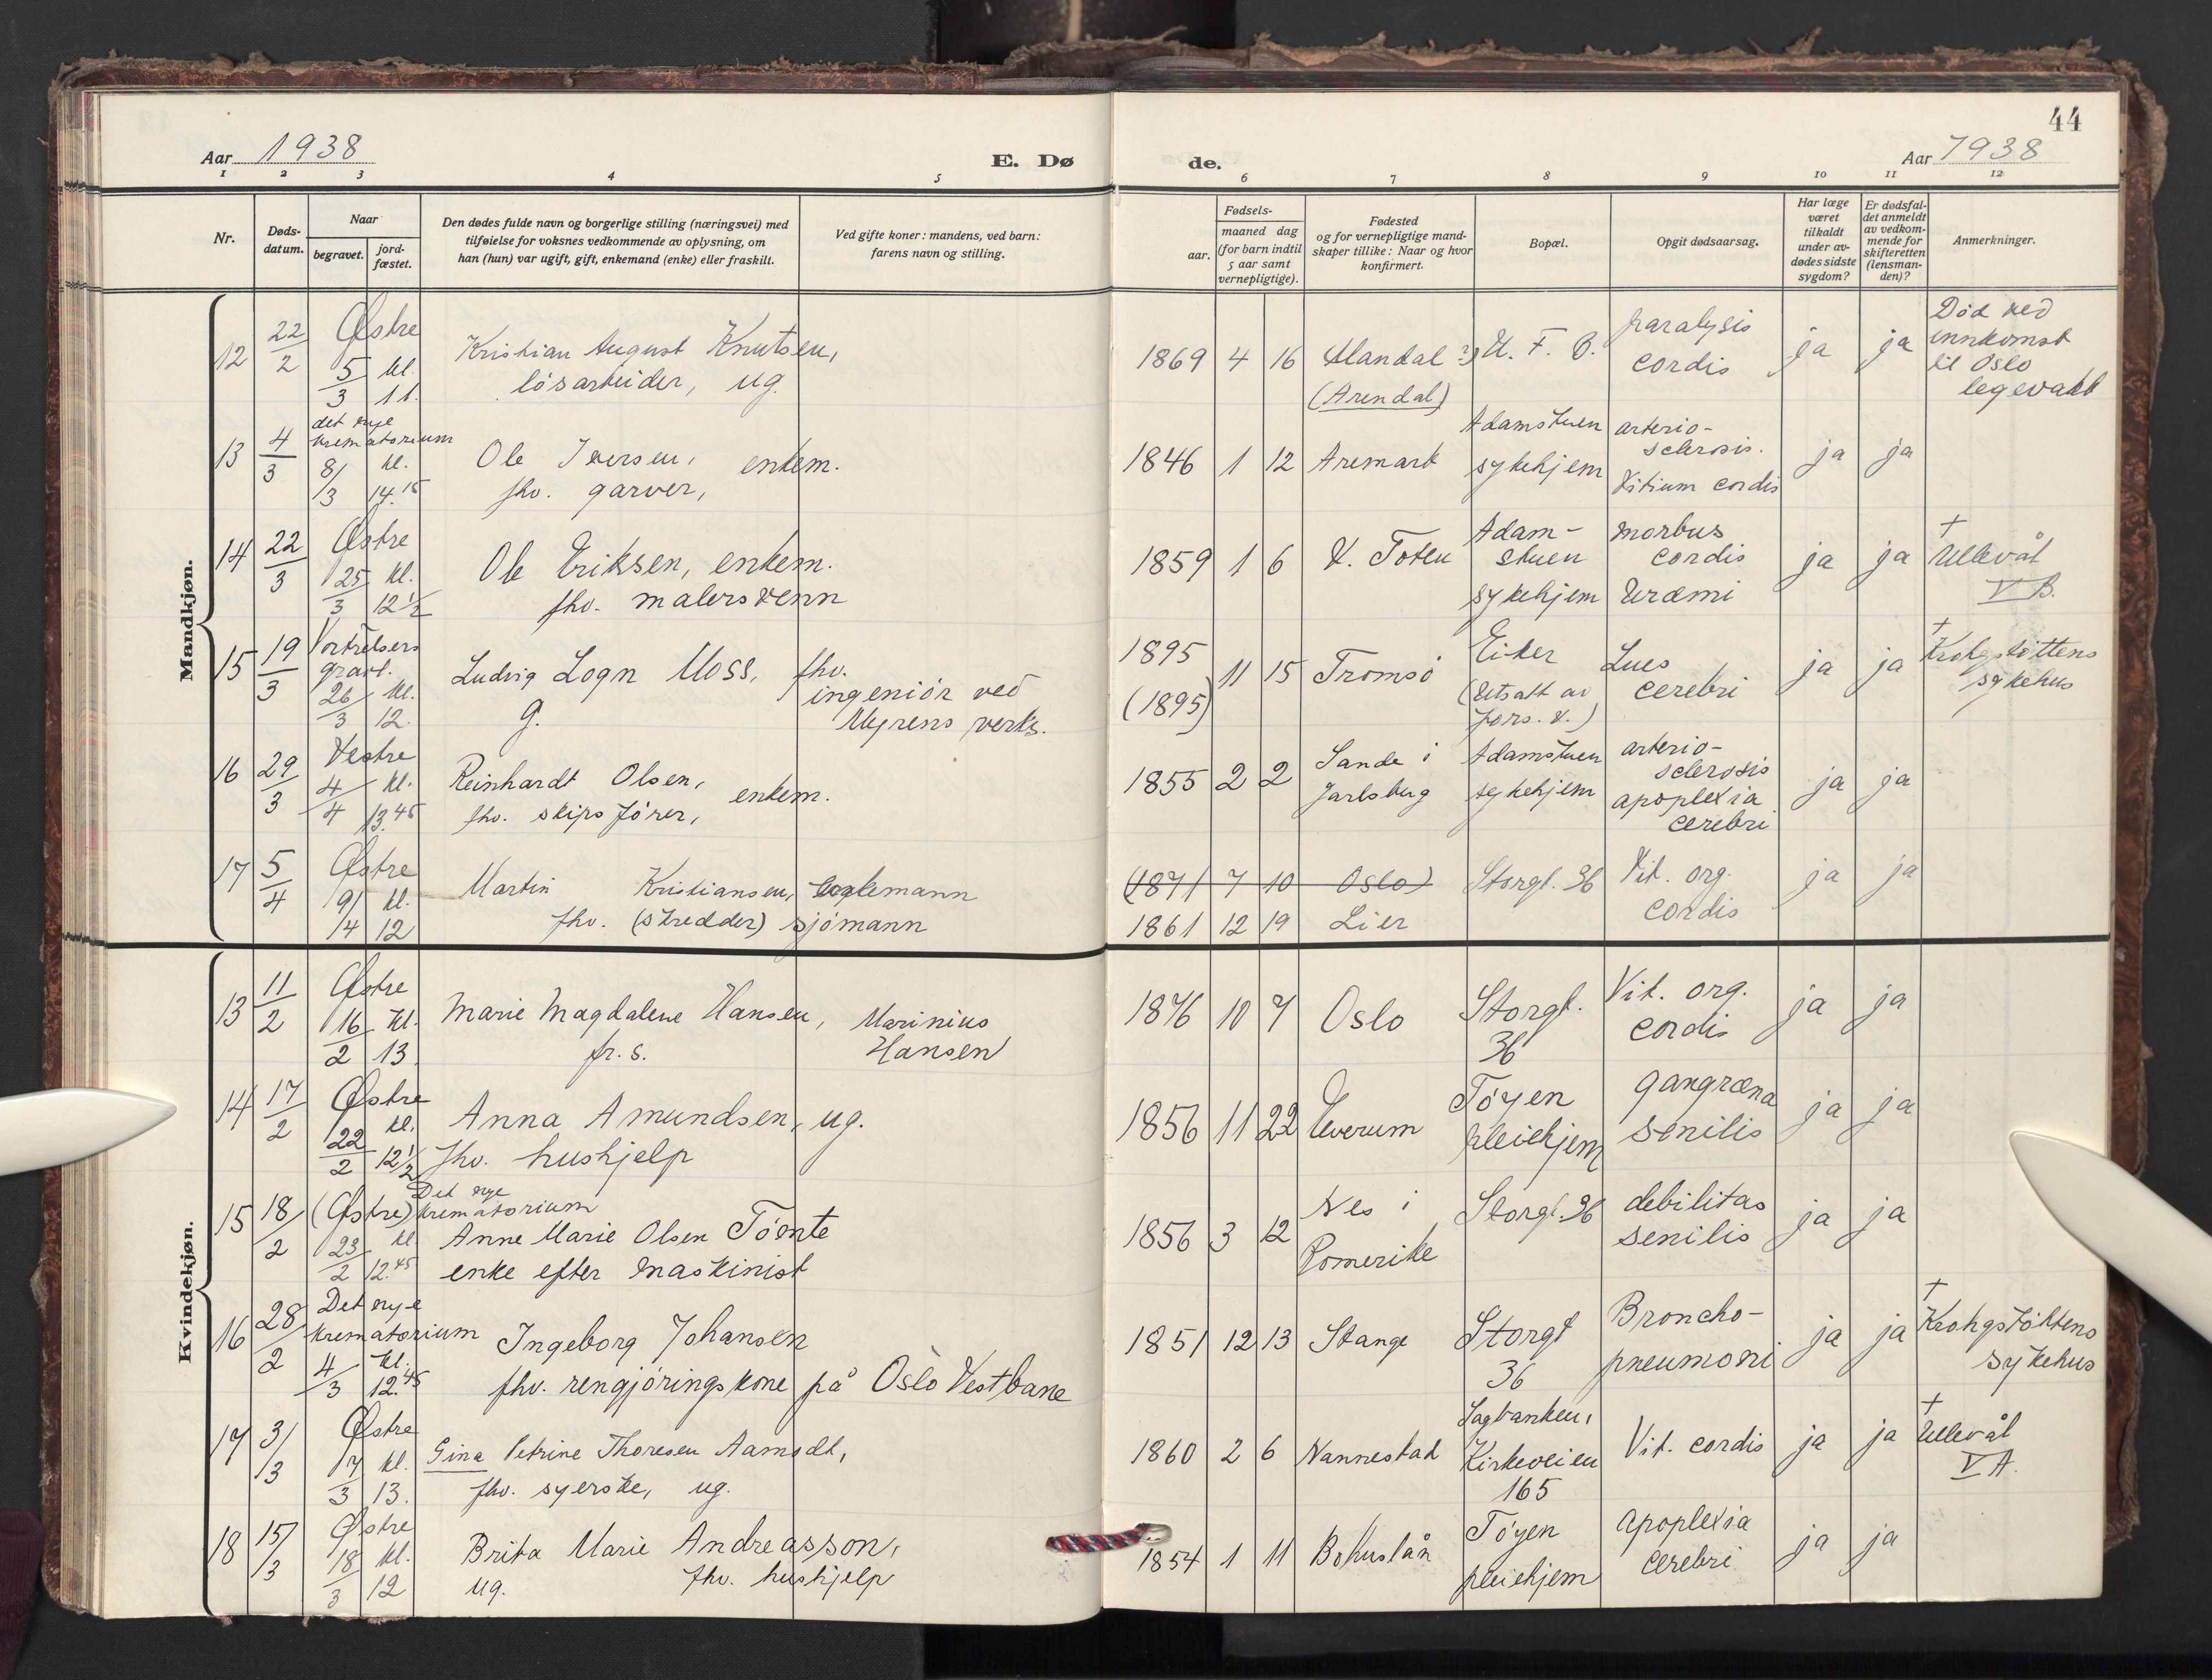 44
Aar 1938
E. Dø
de.
Aar 1938
1 2 3 4 5 6 7 8 9 10 11 12
Nr.
Døds-
datum.
Naar
begravet.
jord-
fæstet.
Den dødes fulde navn og borgerlige stilling (næringsvei) med
tilføielse for voksnes vedkommende av oplysning, om
han (hun) var ugift, gift, enkemand (enke) eller fraskilt.
Ved gifte koner: mandens, ved barn:
farens navn og stilling.
Fødsels-
aar.
maaned dag
(for barn indtil
5 aar samt
vernepligtige).
Fødested
og for vernepligtige mand-
skaper tillike: Naar og hvor
konfirmert.
Bopæl.
Opgit dødsaarsag.
Har læge
været
tilkaldt
under av-
dødes sidste
sygdom?
Er dødsfal-
det anmeldt
av vedkom-
mende for
skifteretten
(lensman-
den)?
Anmerkninger.
Mandkjøn.
12 22/2 Østre 5/3 kl. 11.
Kristian August Knutsen,
løsarbeider, ug.
1869 4 16 Mandal ?)
(Arendal)
U. F. B.
paralysis
cordis
ja ja
Død ved
innkomst
til Oslo
legevakt
13 4/3 det nye
krematorium
8/3 kl. 14.15
Ole Iversen, enkem.
fhv. garver,
1846 1 12 Aremark
Adamstuen
sykehjem
arterio-
sclerosis.
Vitium cordis
ja ja
14 22/3 Østre 25/3 kl. 12 1/2
Ole Eriksen, enkem.
fhv. malersvenn
1859 1 6 V. Toten
Adam-
stuen
sykehjem
morbus
cordis
Uræmi
ja ja
†
Ullevål
V B.
15 19/3 Vor Frelsers
gravl.
26/3 kl. 12.
Ludvig Logn Moss, fhv.
g. ingeniør ved
Myrens verks.
1895
(1895)
11 15 Tromsø
Eiker
(Utsatt av
fors. v.)
Lues
cerebri
ja ja
†
Krohgstøttens
sykehus
16 29/3 Vestre 4/4 kl. 13.45
Reinhardt Olsen, enkem.
fhv. skipsfører,
1855 2 2 Sande i
Jarlsberg
Adamstuen
sykehjem
arterio-
sclerosis
apoplexia
cerebri
ja ja
17 5/4 Østre 9/4 kl. 12
Martin Kristiansen, enkemann
fhv. (skredder) sjømann
(1871 7 10 Oslo)
1861 12 19 Lier
Storgt. 36
Vit. org.
cordis
ja ja
Kvindekjøn.
13 11/2 Østre 16/2 kl. 13
Marie Magdalene Hansen, Marinius
fr. s. Hansen
1876 10 7 Oslo
Storgt.
36
Vit. org.
cordis
ja ja
14 17/2 Østre 22/2 kl. 12 1/2
Anna Amundsen, ug.
fhv. hushjelp
1856 11 22 Elverum
Tøyen
pleiehjem
gangræna
senilis
ja ja
15 18/2 (Østre) Det nye
krematorium
23/2 kl. 12.45
Anne Marie Olsen Tømte
enke efter maskinist
1856 3 12 Nes i
Romerike
Storgt. 36
debilitas
senilis
ja ja
16 28/2 Det nye
krematorium
4/3 kl. 12.45
Ingeborg Johansen
fhv. rengjøringskone på Oslo Vestbane
1851 12 13 Stange
Storgt
36
Broncho-
pneumoni
ja ja
†
Krohgstøttens
sykehus
17 3/3 Østre 7/3 kl. 13.
Gina Petrine Thoresen Aamodt,
fhv. syerske, ug.
1860 2 6 Nannestad
Sagbanken,
Kirkeveien
165
Vit. cordis
ja ja
†
Ullevål
V A.
18 15/3 Østre 18/3 kl. 12
Brita Marie Andreasson,
ug. fhv. hushjelp
1854 1 11 Bohuslän
Tøyen
pleiehjem
apoplexia
cerebri
ja ja